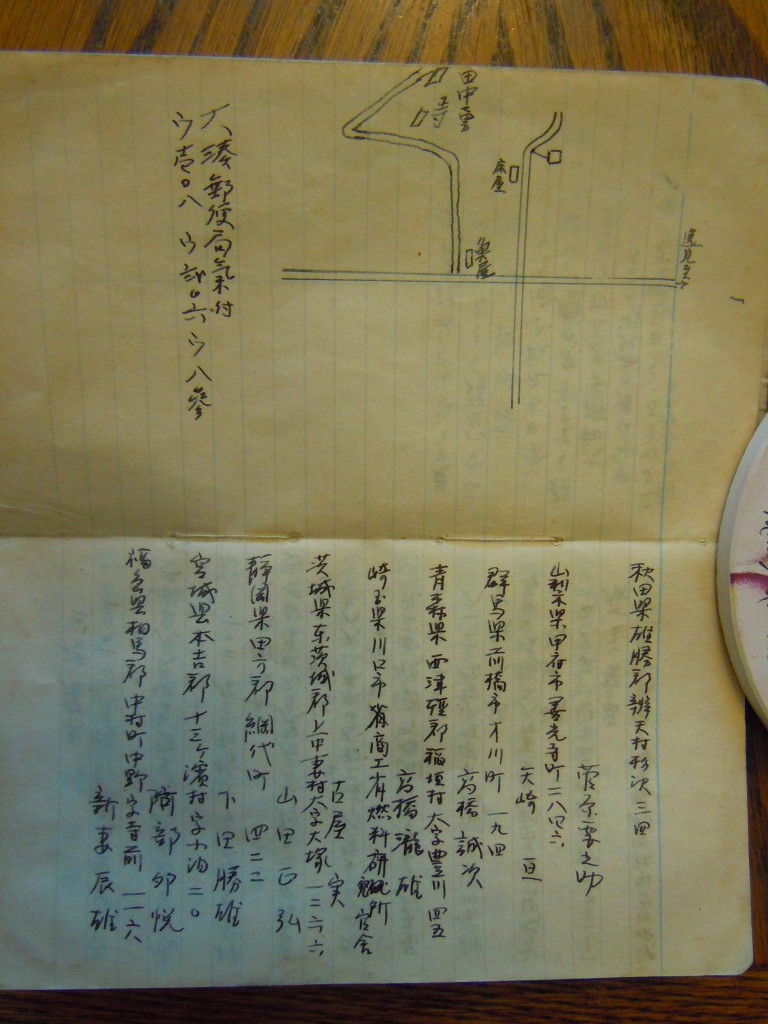 田中
寺
床屋
魚屋
大湊郵便局氣付
ウ壱〇八ウ弐〇六ウ八参
秋田県雄勝郡辨天村杉沢三四
菅原
山梨県甲府市善光寺町二八四六
矢崎 亘
群馬県前橋市才川町一九四
高橋誠次
青森県西津軽郡稲垣村大字豊川四五
高橋瀧雄
埼玉県川口市 商工省燃料研究所官舎
古屋 実
茨城県東茨城郡上中妻村大字大塚一二六六
山田正弘
静岡県田方郡網代町 四二二
下田勝雄
宮城県本吉郡十三ヶ濱村字小泊二〇
阿部 悦
福島県相馬郡中村町中野字寺前一一六
新妻辰雄